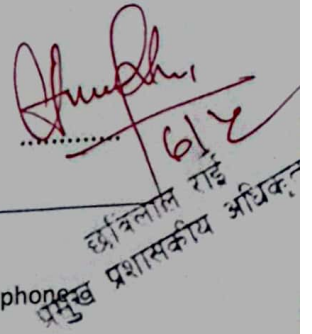 6/४
छविलाल राई
प्रमुख प्रशासकीय अधिकृत
phone